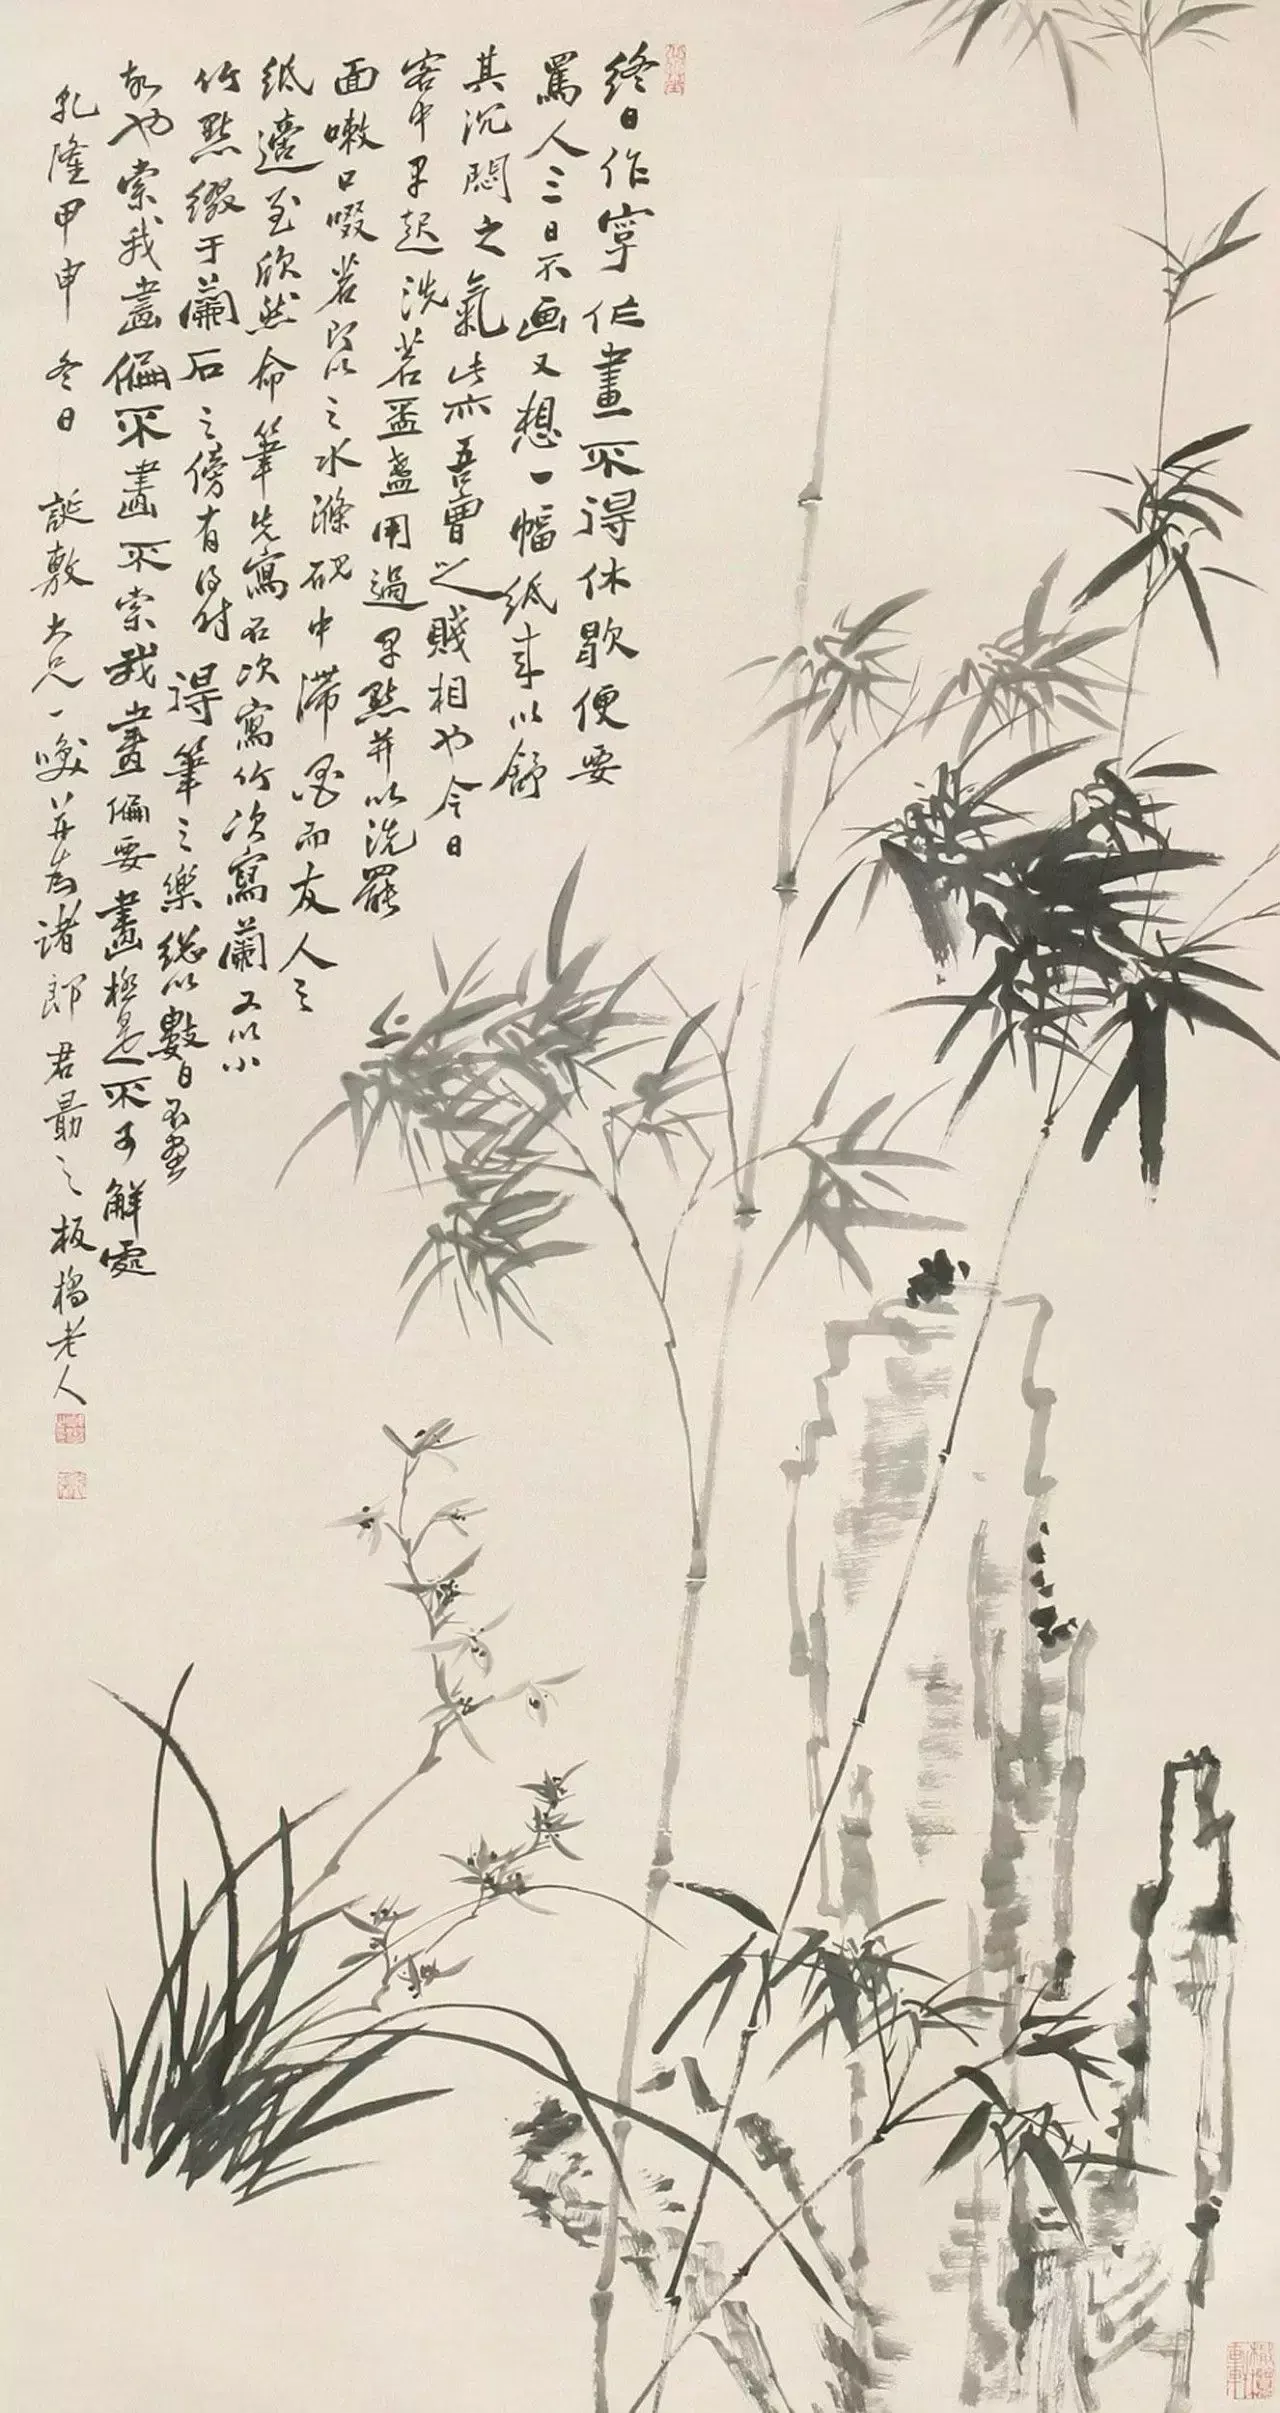 終日作字作畫不得休歇便要
罵人三日不画又想一幅紙来以舒
其沉悶之氣此亦吾曹之賤相也今日
客中早起洗茗盃盞用過早點并以洗罷
面嗽口啜茗以之水滌硯中滯墨而友人之
紙適至欣然命筆先寫石次寫竹次寫蘭又以小
竹點綴于蘭石之傍有得時得筆之樂総以數日不畫
故也索我畫偏不畫不索我畫偏要畫極是不可解處
乹隆甲申冬日誕敷大兄一噱并為諸郎君勗之板橋老人